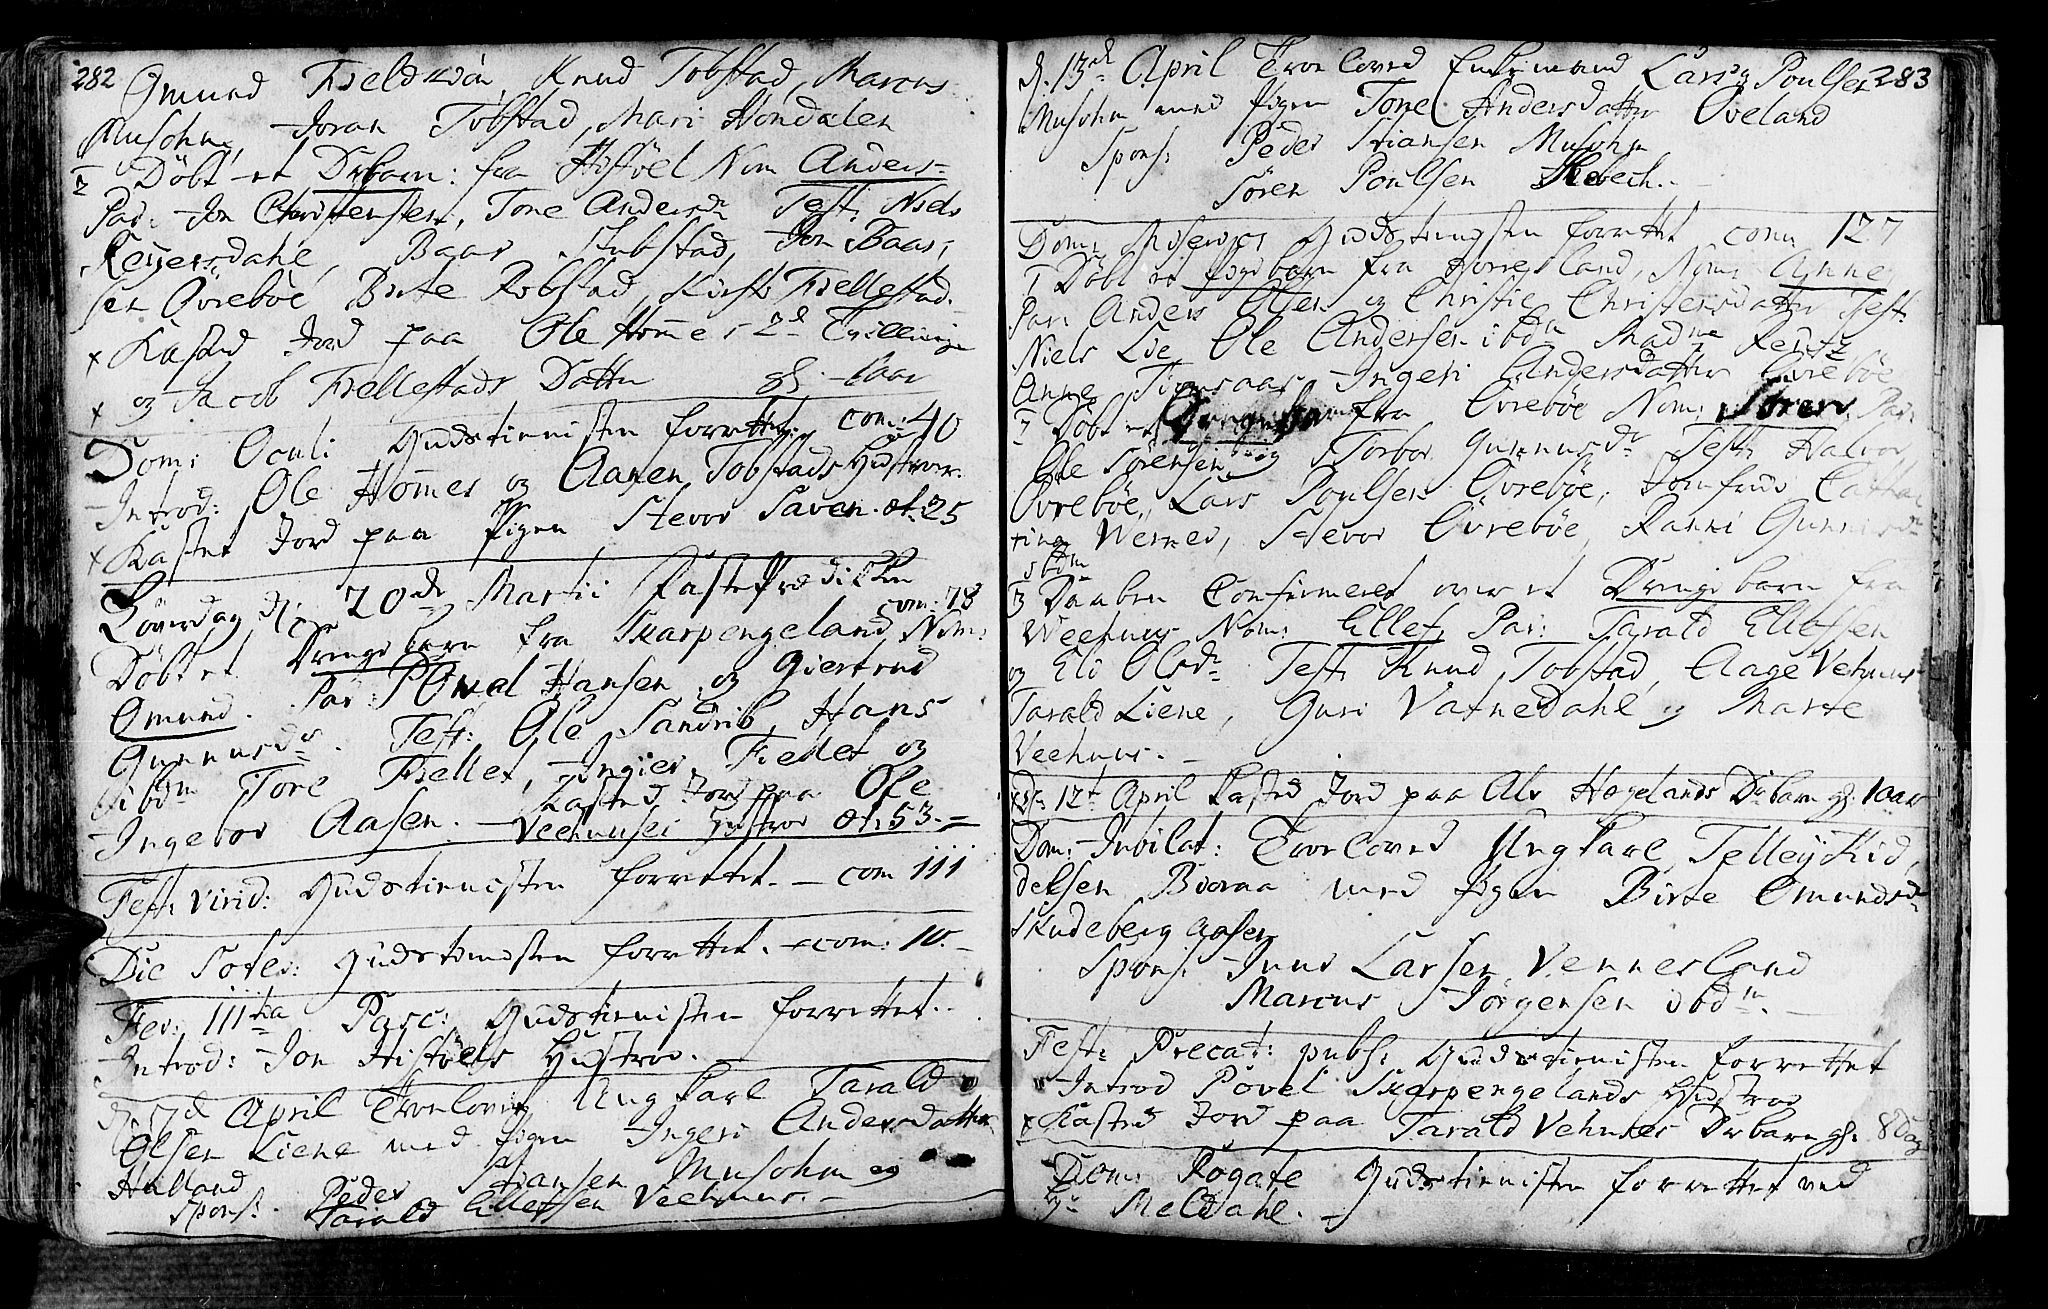 282
Omund Knud Tobstad, Marcus
Musohm, Joran Tobstad, Mari Hondalen
2 Döbt et Drbarn: fra Histöel Nom Anders
Par: Jon Christensen, Tone Andersdr Test: Niels
Reijersdahl, Baar Stubstad, Jon Baar,
sen Övreböe Birte Robstad, Kirste Fiellestad
x Kasted Jord paa Ole Homes 2de Tvillinge
x og Jacob Fiellestads Datter gl. - 1 aar
Dom: Oculi Gudstienisten forrettet com: 40
Introd: Ole Homes og Aanen Tobstads Hustroer
x Kastet Jord paa Pigen Stevor Saven æt. 25
Löverdag d. 20de Martii FastePrædiken
com: 78
Döbt et Drengebarn fra Skarpengeland, Nom:
Omund. Par: Povel Hansen og Giertrud
Gunnusdr. Test: Ole Sandrib, Hans
ibdm Tore Fiellet, Ingier Fiellet og
Ingebor Aasen. - Kasted Jord paa Ole
Veehuusei Hustroe æt: 53.
Fest: Virid: Gudstienisten forrettet. - com 111
Die Soter: Gudstienisten forrettet. - com: 10.
Fer: IIItia Pasc: Gudstienisten forrettet.
Introd: Jon Histöels Hustroe.
d. 17d April Trolovet Ung Karl Tarald
Olsen Liene med Pigen Ingeri Andersdatter
Halland
Spons: Peder Stiansen Musohm og
Tarald Ellefsen Veehuus.
283
d. 13de April Trolovet Enkemand Lars Poulsen
Musohm med Pigen Tone Andersdatter Öveland
Spons: Peder Stiansen Musohm
Sören Poulsen Rebech.
Dom: Miseric: Gudstienesten forrettet com 127
1 Döbt et Pigebarn fra Homesland, Nom: Anne
Par: Anders Olsen og Christie Christensdatter Test:
Niels Lie Ole Andersen ibdm Madme Rentz
Anne Ingeri Andersdatter Övreböe
2 Döbt et Drengebarn fra Övreböe Nom: Sören Par:
Ole Sörensen og Torbor Gunnusdr Test: Halvor
Övreböe, Lars Poulsen Övreböe, Jomfrue Catha
rina Werner, Stevor Övreböe, Ranni Gunnusdr
ibdm
3 Daaben Confirmeret over et Drengebarn fra
Weehuus Nom: Ellef Par: Tarald Ellefsen
og Eli Olsdr Test: Knud Tobstad, Aage Vehuus
Tarald Liene, Guri Vatnedahl og Marte
Veehuus.
d. 12t April Kasted Jord paa Als Hagelands Drbarn gl: 1 aar
Dom: Jubilat: Trolovet Ung Karl Tellej Kid,
delsen med Pigen Birte Omundsdr
Skudeberg Aasen
Spons: Juul Larsen Vennesland
Marcus Jörgensen ibdm.
Fest: Precat: publ: Gudstienisten forrettet
Introd Povel Skarpengelands Hustroe
x Kasted Jord paa Tarald Vehuses Drbarn gl: 8 Dag
Dom: Rogate Gudstienisten forrettet ved
Hr Meldahl.